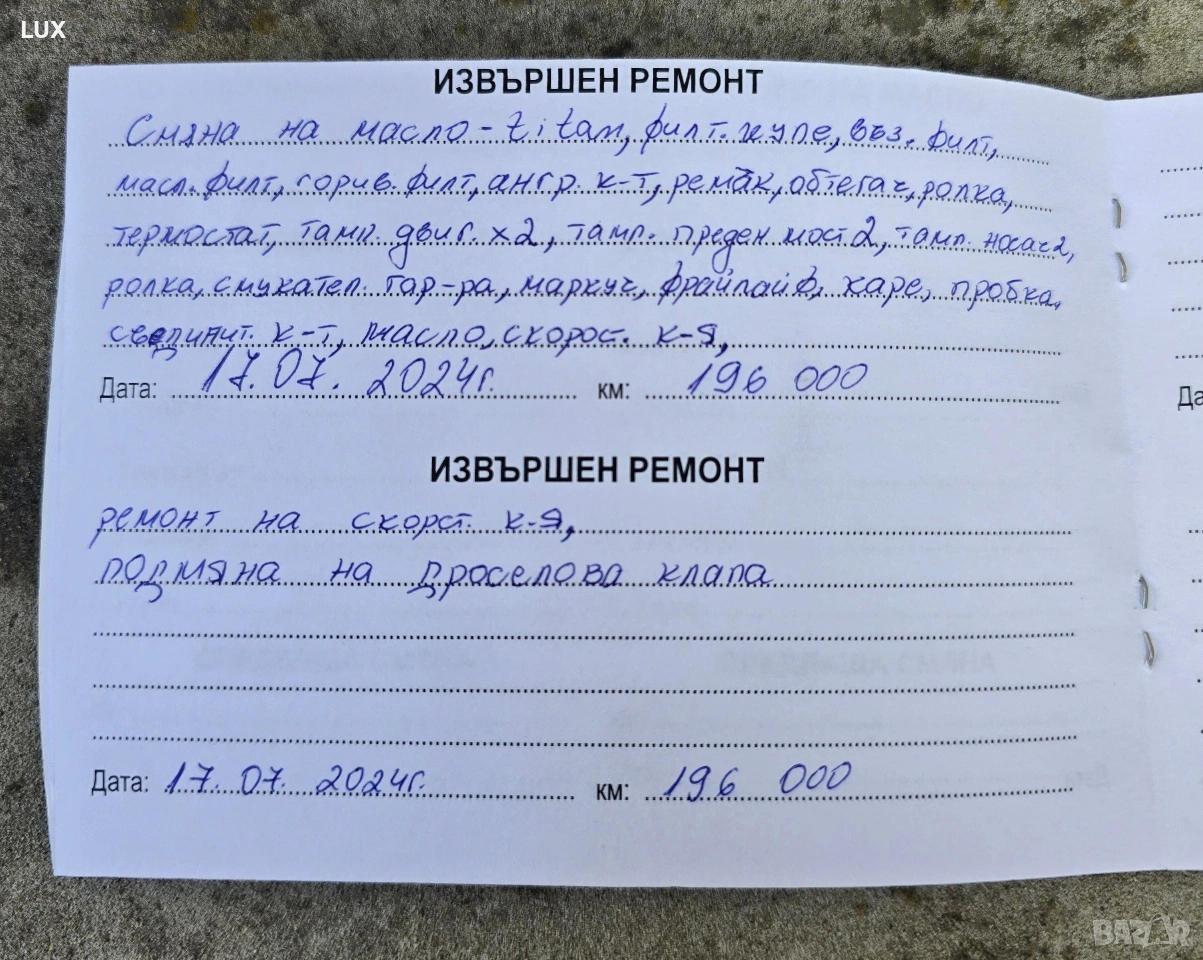 LUX
ИЗВЪРШЕН РЕМОНТ
Смяна на масло - titan, филт. купе, въз. филт,
масл. филт, горив. филт, ангр. к-т, ремък, обтегач, ролка,
термостат, тамп. двиг. x2, тамп. преден мост 2, тамп. носач 2,
ролка, смукател. гар-ра, маркуч, фрайлайф, каре, пробка,
съединит. к-т, масло, скорос. к-я,
Дата: 17.07. 2024г. км: 196 000
ИЗВЪРШЕН РЕМОНТ
ремонт на скорст. к-я,
подмяна на дроселова клапа
Дата: 17.07. 2024г. км: 196 000
Да
BAZAR